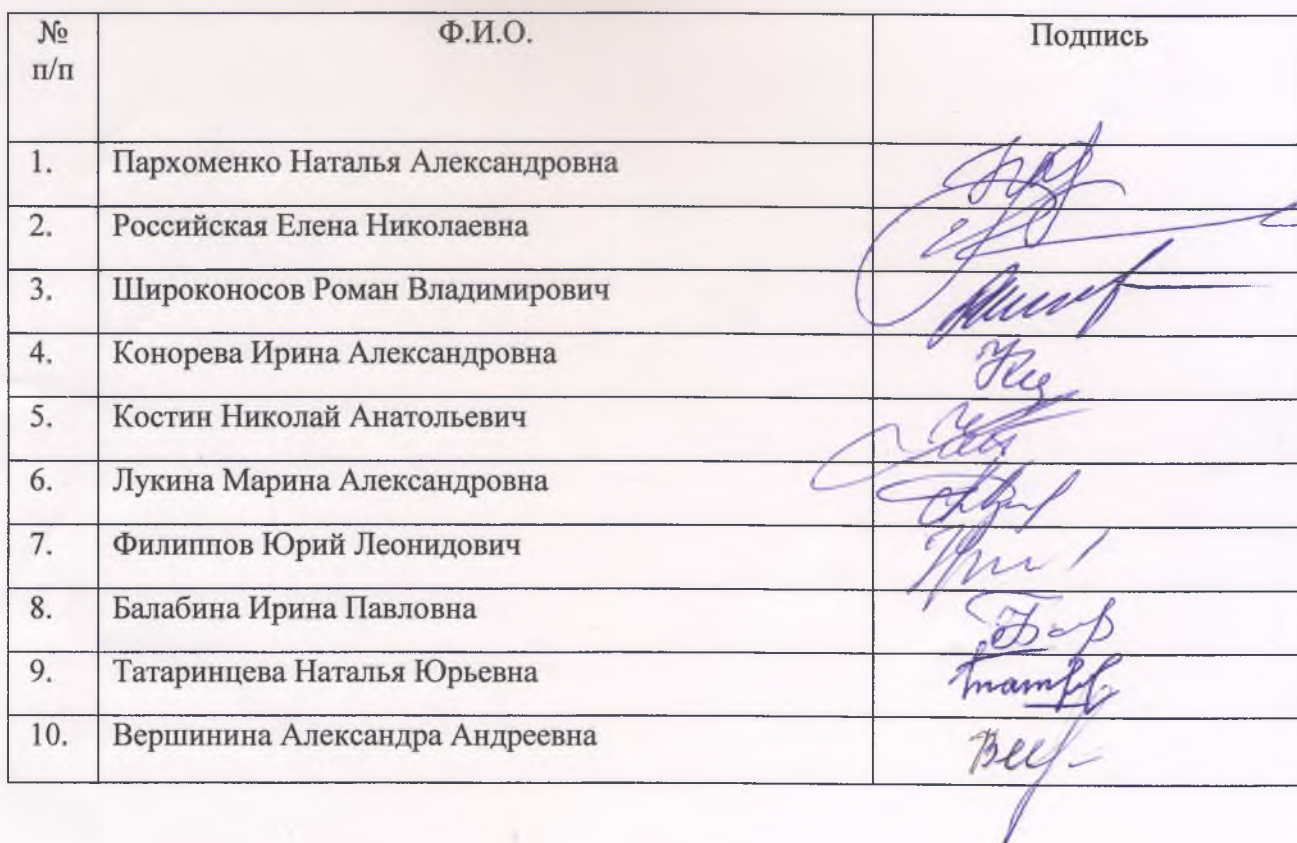 № Ф.И.О. Подпись
п/п
1. Пархоменко Наталья Александровна
2. Российская Елена Николаевна
3. Широконосов Роман Владимирович
4. Конорева Ирина Александровна
5. Костин Николай Анатольевич
6. Лукина Марина Александровна
7. Филиппов Юрий Леонидович
8. Балабина Ирина Павловна
9. Татаринцева Наталья Юрьевна
10. Вершинина Александра Андреевна